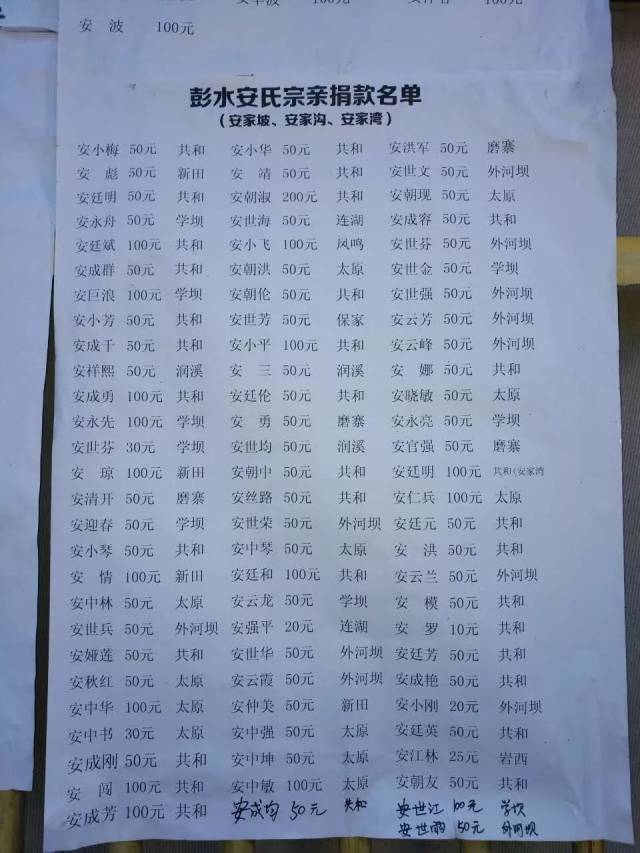 安 波 100元
彭水安氏宗亲捐款名单
(安家坡、安家沟、安家湾)
安小梅 50元 共和 安小华 50元 共和 安洪军 50元 磨寨
安 彪 50元 新田 安 靖 50元 共和 安世文 50元 外河坝
安廷明 50元 共和 安朝淑 200元 共和 安朝现 50元 太原
安永舟 50元 学坝 安世海 50元 连湖 安成容 50元 共和
安廷斌 100元 共和 安小飞 100元 凤鸣 安世芬 50元 外河坝
安成群 50元 共和 安朝洪 50元 太原 安世金 50元 学坝
安巨浪 100元 学坝 安朝伦 50元 共和 安世强 50元 外河坝
安小芳 50元 共和 安世芳 50元 保家 安云芳 50元 外河坝
安成千 50元 共和 安小平 100元 共和 安云峰 50元 外河坝
安祥熙 50元 润溪 安 三 50元 润溪 安 娜 50元 共和
安成勇 100元 共和 安廷伦 50元 共和 安晓敏 50元 太原
安永先 100元 学坝 安 勇 50元 磨寨 安永亮 50元 学坝
安世芬 30元 学坝 安世均 50元 润溪 安官强 50元 磨寨
安 琼 100元 新田 安朝中 50元 共和 安廷明 100元 共和(安家湾
安清开 50元 磨寨 安丝路 50元 共和 安仁兵 100元 太原
安迎春 50元 学坝 安世荣 50元 外河坝 安廷元 50元 共和
安小琴 50元 共和 安中琴 50元 太原 安 洪 50元 共和
安 情 100元 新田 安廷和 100元 共和 安云兰 50元 外河坝
安中林 50元 太原 安云龙 50元 学坝 安 模 50元 共和
安世兵 50元 外河坝 安强平 20元 连湖 安 罗 10元 共和
安娅莲 50元 共和 安世华 50元 外河坝 安廷芳 50元 共和
安秋红 50元 太原 安云霞 50元 外河坝 安成艳 50元 共和
安中华 100元 太原 安仲美 50元 新田 安小刚 20元 外河坝
安中书 30元 太原 安中强 50元 太原 安廷英 50元 共和
安成刚 50元 共和 安中坤 50元 太原 安江林 25元 岩西
安 闯 100元 共和 安中敏 100元 太原 安朝友 50元 共和
安成芳 100元 共和 安成均 50元 共和 安世江 100元 学坝
安世雨 50元 外河坝